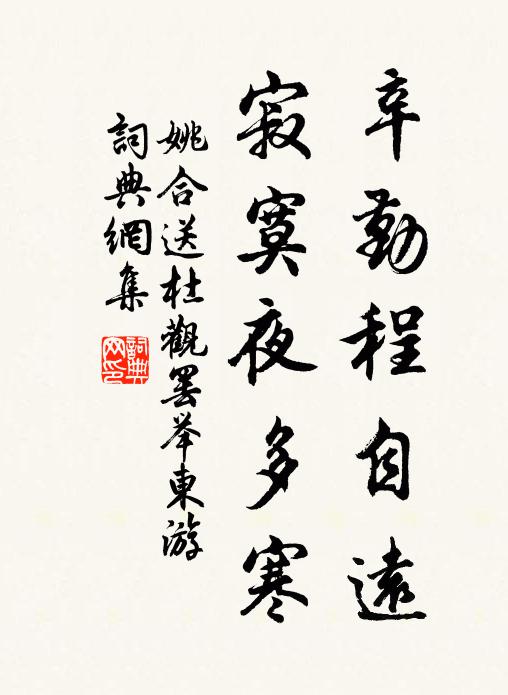 辛勤程自遠
寂寞夜多寒
姚合送杜觀罷举東游
詞典網集
詞典
网印